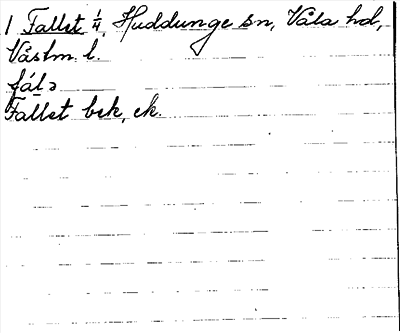 1 Fallet 1/4, Huddunge sn, Våla hd,
Västm. l.
fál̲ə
Fallet bsk, ek.